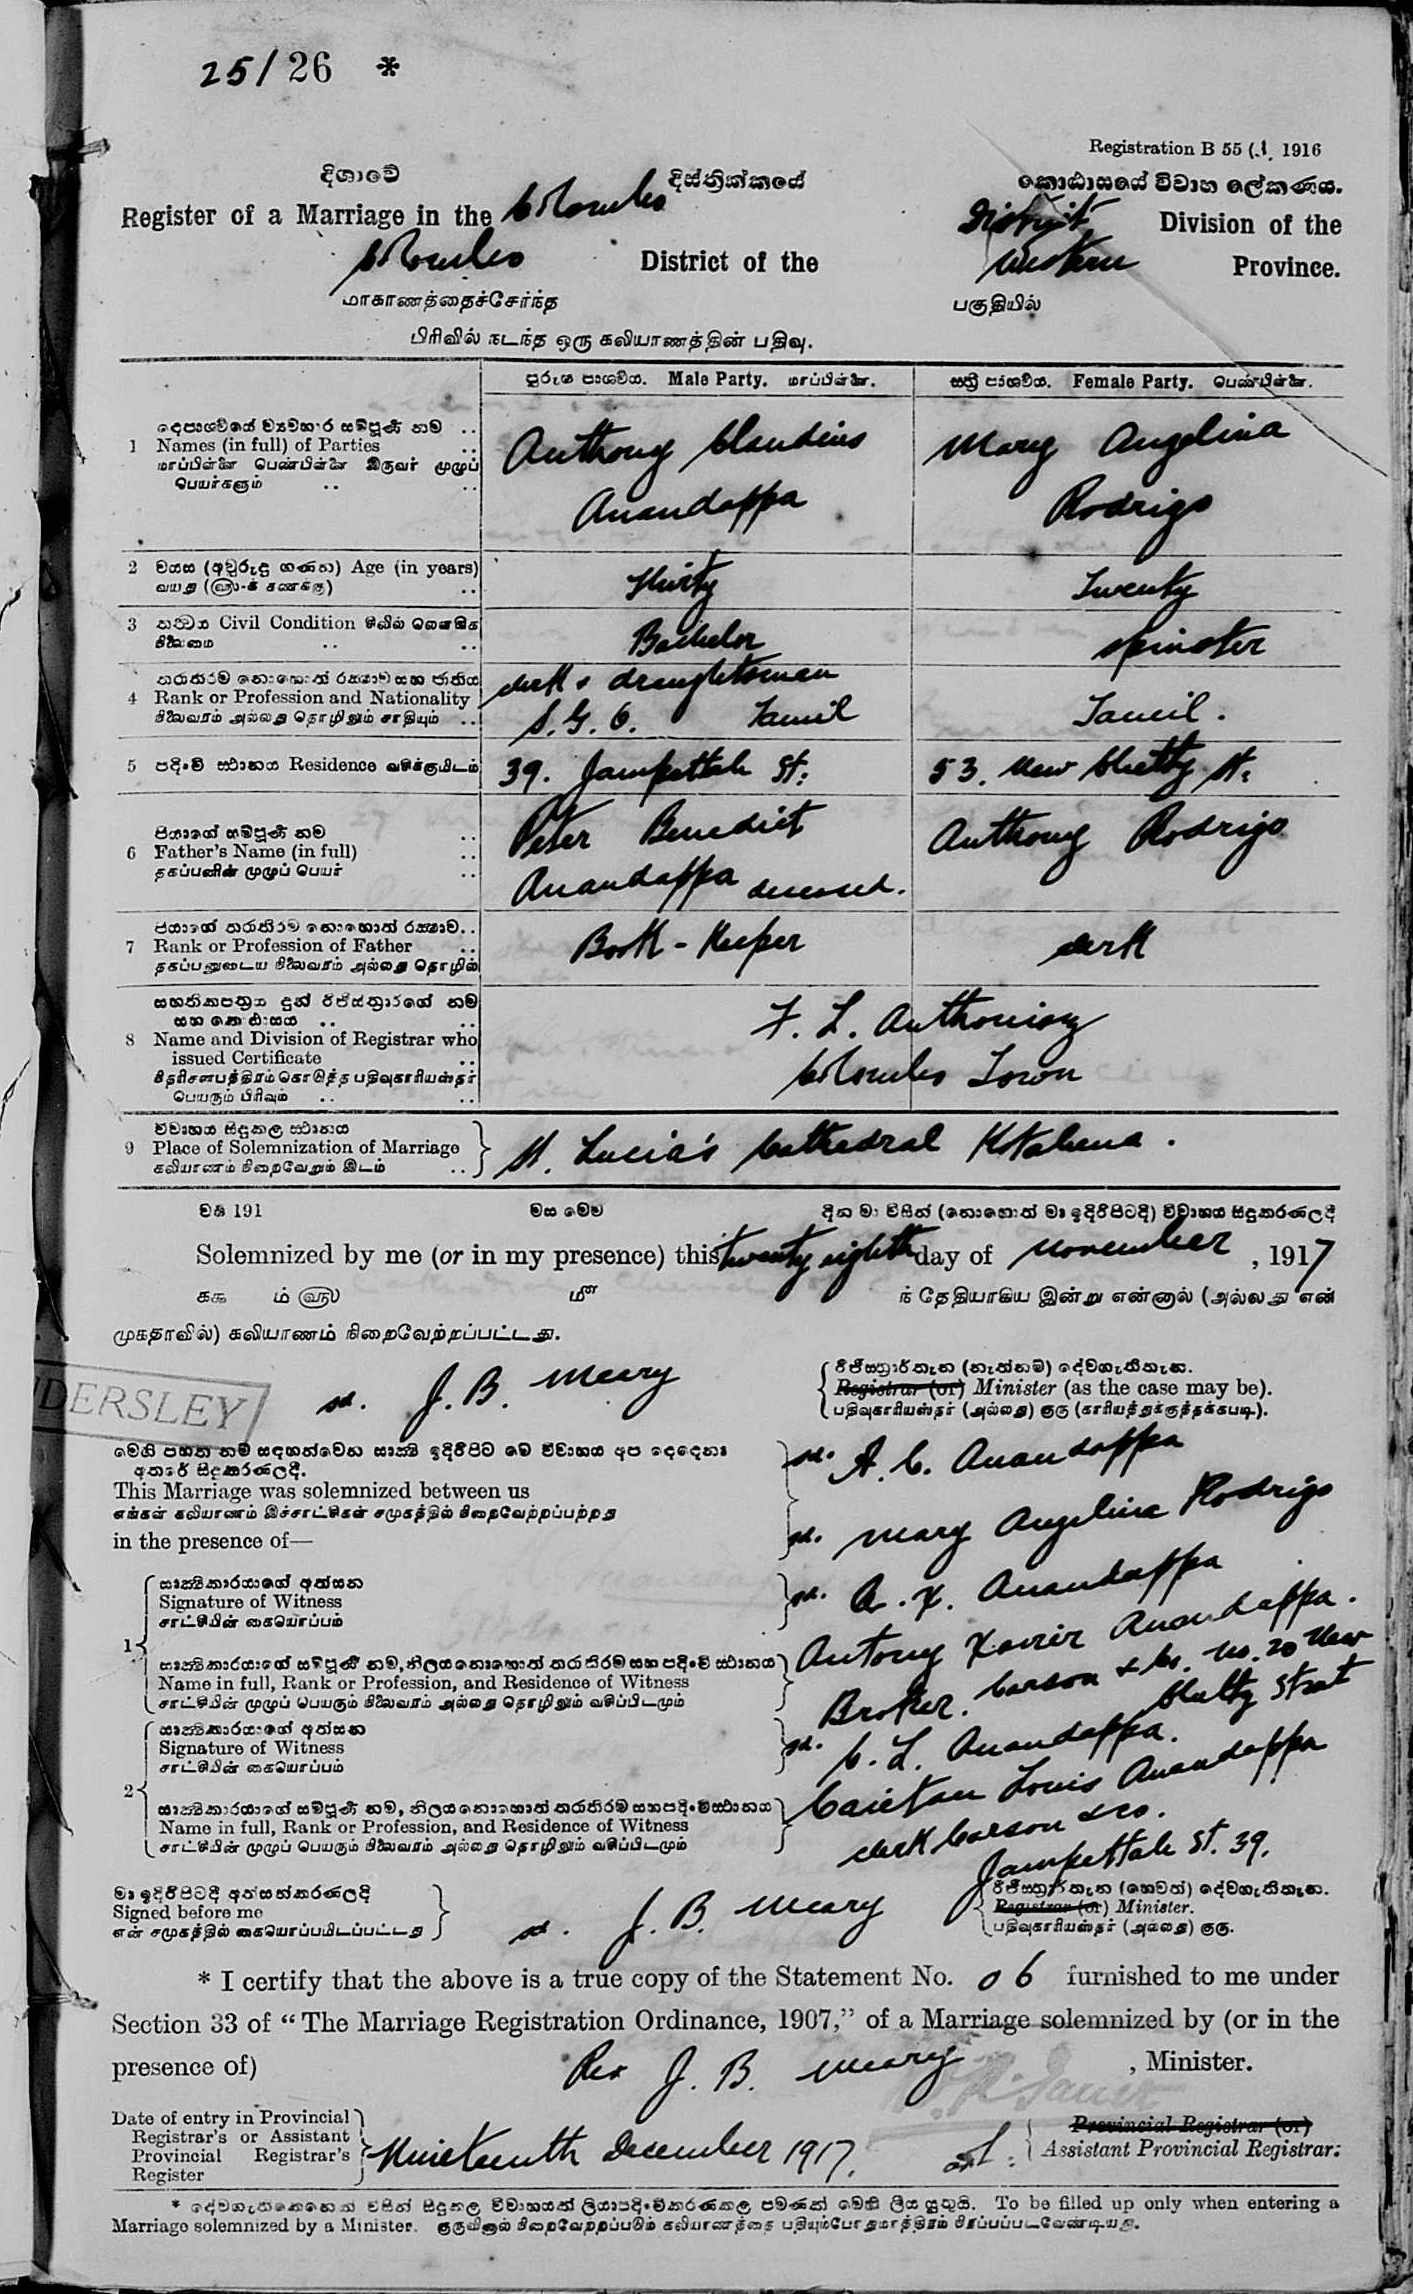 25/26 *
Registration B 55 (. 1916
දිශාවේ දිස්ත්‍රික්කයේ කොඨාසයේ විවාහ ලේකණය.
Register of a Marriage in the Colombo District Division of the
Colombo District of the Western Province.
மாகாணத்தைச்சேர்ந்த பகுதியில்
பிரிவில் நடந்த ஒரு கலியாணத்தின் பதிவு.
පුරුෂ පාශවය. Male Party. மாப்பிள்ளை. ස්ත්‍රී පාශවය. Female Party. பெண்பிள்ளை.
1 Names (in full) of Parties
மாப்பிள்ளை பெண்பிள்ளை இருவர் முழுப்
பெயர்களும்
Anthony Claudius Anandappa
Mary Angelina Rodrigo
2 වයස (අවුරුදු ගණන) Age (in years) Thirty Twenty
வயது (ஹு-க் கணக்கு)
3 Civil Condition Bachelor Spinster
4 Rank or Profession and Nationality Clerk & draughtsman S. G. O. Tamil Tamil.
நிலைவரம் அல்லது தொழிலும் சாதியும்
5 පදිංචි ස්ථානය Residence வசிக்குமிடம் 39. Jampettah St: 53. New Chetty St:
6 පියාගේ සම්පූර්ණ නම
Father's Name (in full) Peter Benedict Anandappa deceased. Anthony Rodrigo
தகப்பனின் முழுப் பெயர்
7 Rank or Profession of Father Book-Keeper Clerk
தகப்பனுடைய நிலைவரம் அல்லது தொழில்
8 Name and Division of Registrar who
issued Certificate
பெயரும் பிரிவும்
F. L. Anthonisz
Colombo Town
9 විවාහය සිදුකල ස්ථානය
Place of Solemnization of Marriage St. Lucia's Cathedral Kotahena.
கலியாணம் நிறைவேறும் இடம்
වර්‍ෂ 191 මස මෙම දින මා විසින් (නොහොත් මා ඉදිරිපිටදී) විවාහය සිදුකරණලදී
Solemnized by me (or in my presence) this twenty eighth day of November, 1917
ம் ஹு மீ ந் தேதியாகிய இன்று என்னால் (அல்லது என்
முகதாவில்) கலியாணம் நிறைவேற்றப்பட்டது.
sd. J. B. Meary
Registrar (or) Minister (as the case may be).
பதிவுகாரியஸ்தர் (அல்லது) குரு (காரியத்துக்குத்தக்கபடி).
DERSLEY
This Marriage was solemnized between us
எங்கள் கலியாணம் இச்சாட்சிகள் சமுகத்தில் நிறைவேற்றப்பற்றது
in the presence of—
sd. A. C. Anandappa
sd. Mary Angelina Rodrigo
1 සාක්‍ෂිකාරයාගේ අත්සන
Signature of Witness
சாட்சியின் கையொப்பம்
sd. A. X. Anandappa
Name in full, Rank or Profession, and Residence of Witness
சாட்சியின் முழுப் பெயரும் நிலைவரம் அல்லது தொழிலும் வசிப்பிடமும்
Antony Xavier Anandappa.
Broker. Carson & Co. No. 20 New
Chetty Street
2 සාක්‍ෂිකාරයාගේ අත්සන
Signature of Witness
சாட்சியின் கையொப்பம்
sd. C. L. Anandappa.
Name in full, Rank or Profession, and Residence of Witness
சாட்சியின் முழுப் பெயரும் நிலைவரம் அல்லது தொழிலும் வசிப்பிடமும்
Caietan Louis Anandappa
Clerk Carson & Co.
Jampettah St. 39.
මා ඉදිරිපිටදී අත්සන්කරණලදී
Signed before me
என் சமுகத்தில் கையொப்பமிடப்பட்டது
sd. J. B. Meary
Registrar (or) Minister.
பதிவுகாரியஸ்தர் (அல்லது) குரு.
* I certify that the above is a true copy of the Statement No. 06 furnished to me under
Section 33 of “The Marriage Registration Ordinance, 1907,” of a Marriage solemnized by (or in the
presence of) Rev J. B. Meary, Minister.
Date of entry in Provincial
Registrar's or Assistant
Provincial Registrar's
Register
Nineteenth December 1917.
Provincial Registrar (or)
Assistant Provincial Registrar.
To be filled up only when entering a
Marriage solemnized by a Minister. குருவினால் நிறைவேற்றப்படும் கலியாணத்தை பதியும்போதுமாத்திரம் நிரப்பப்படவேண்டியது.